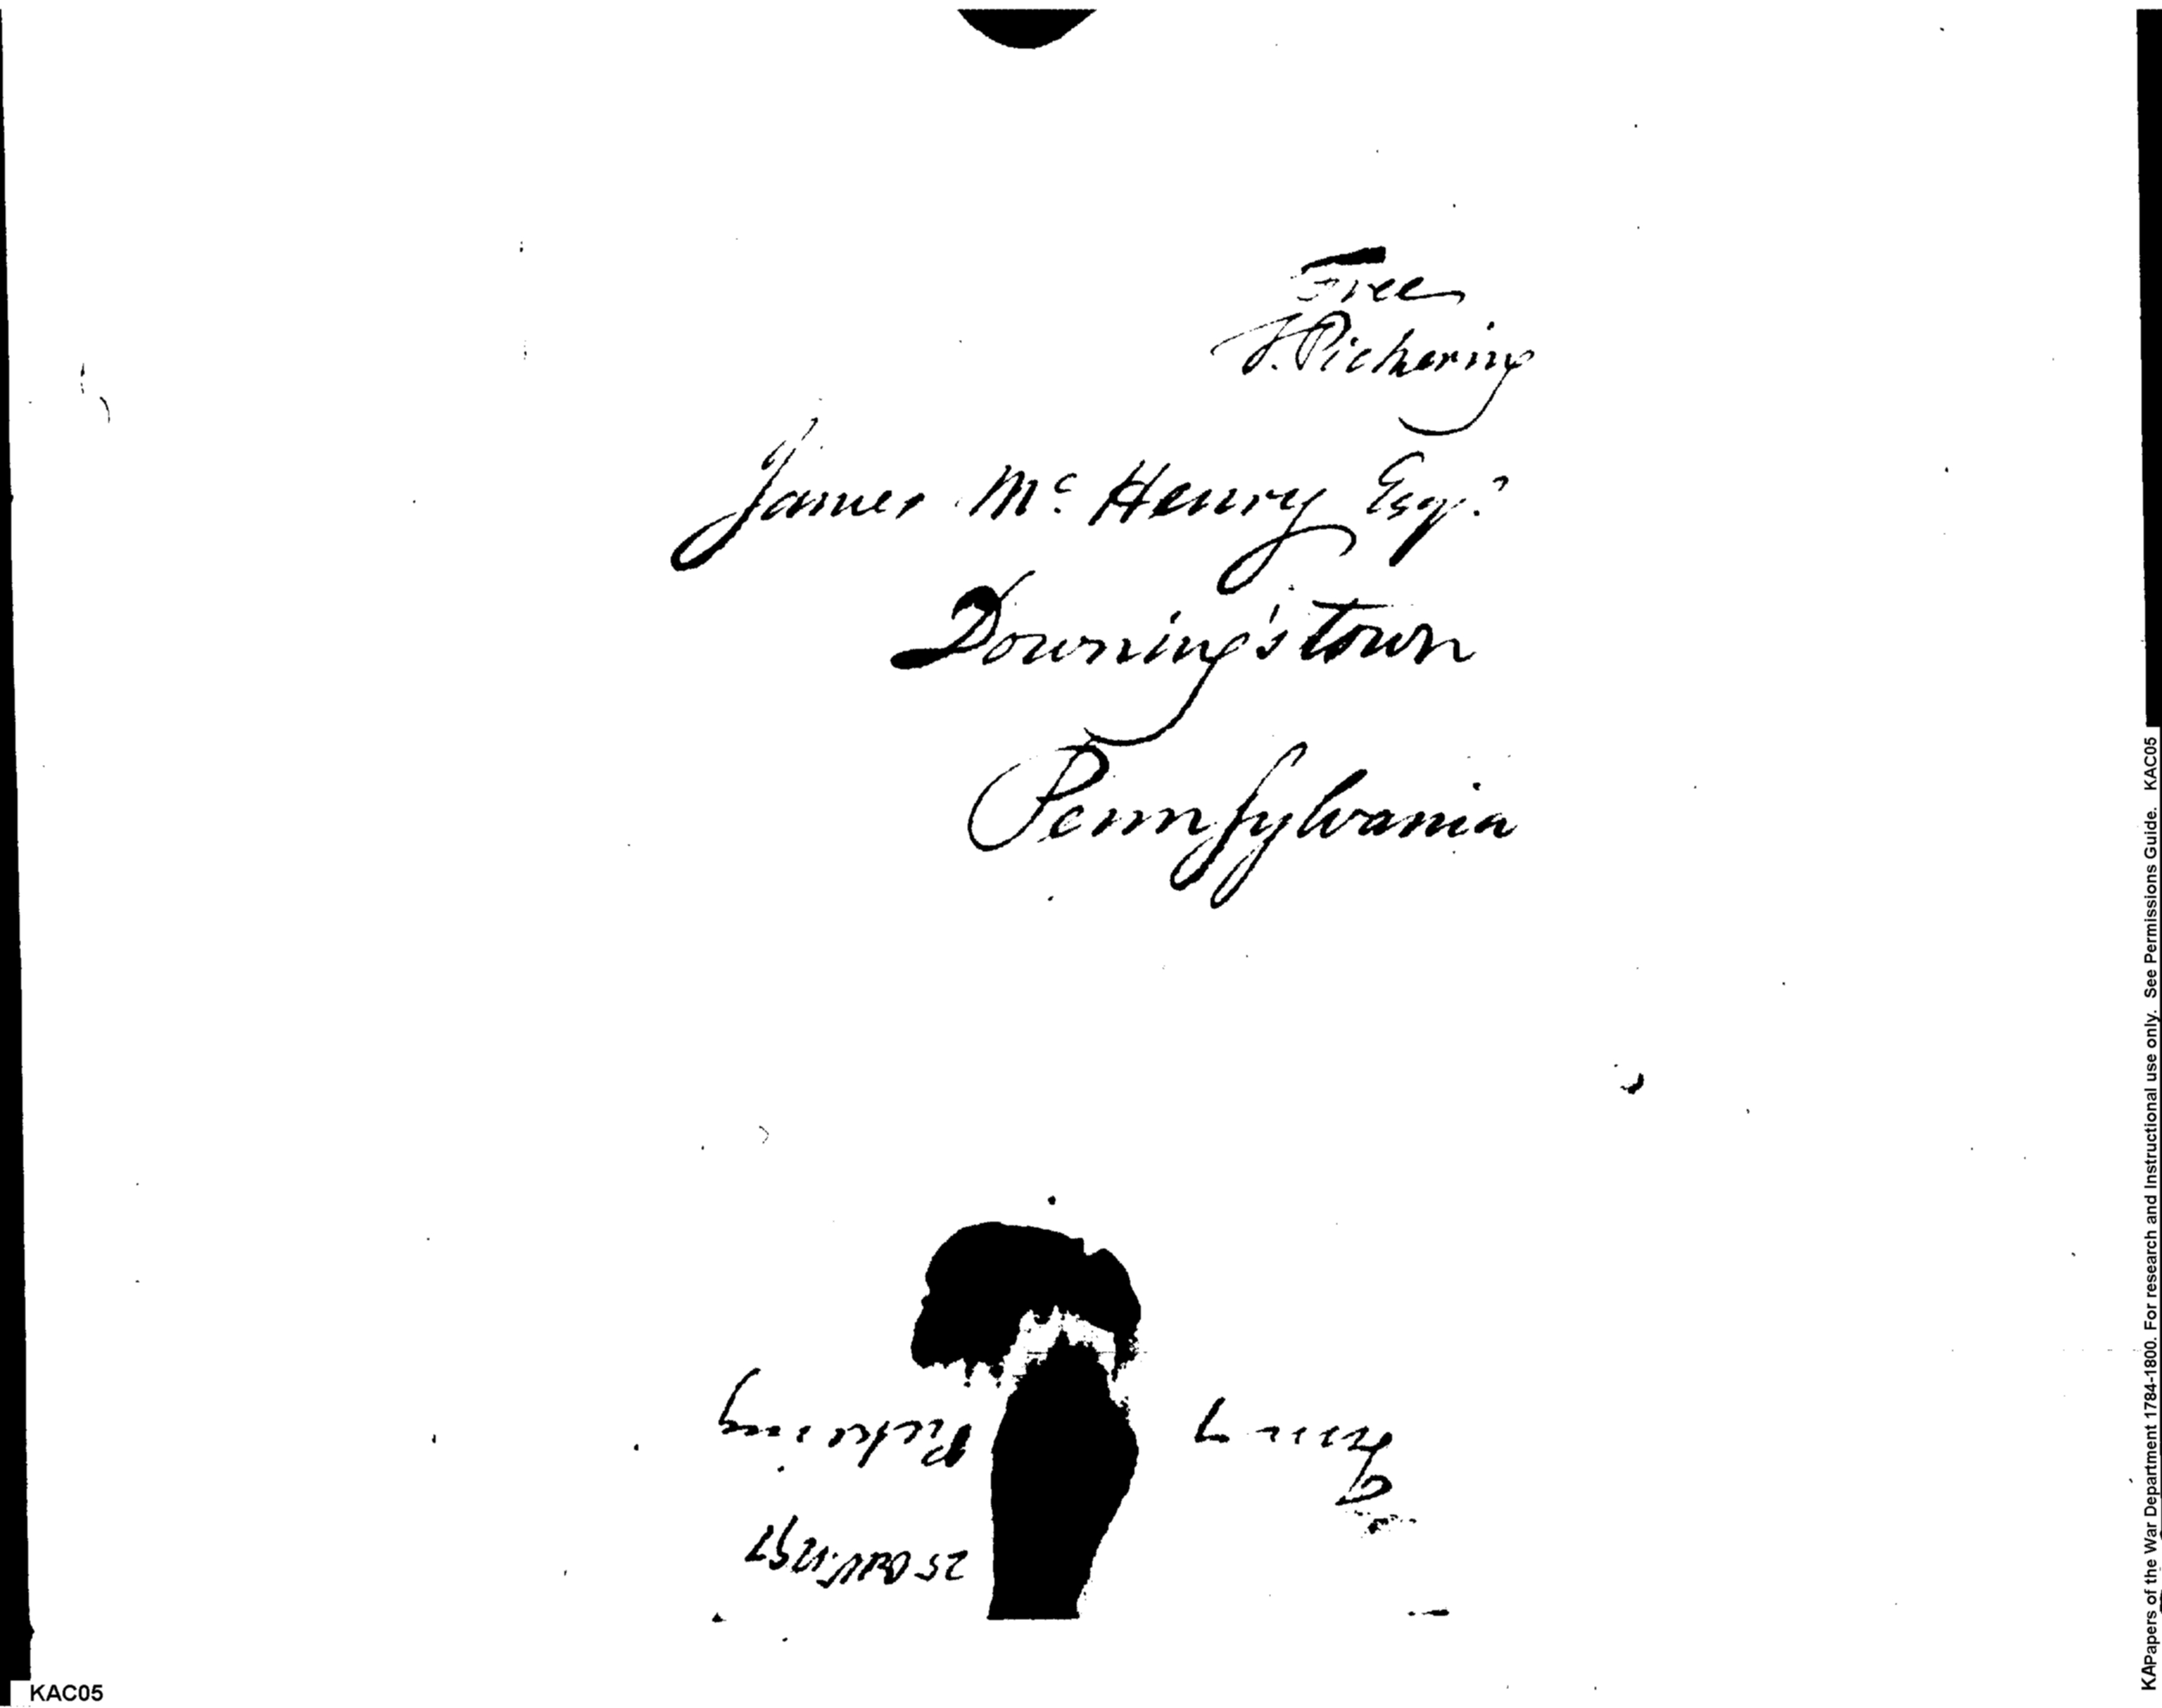 Free
T. Pickering
James Mc. Henry Esqr.
Downing's town
Pennsylvania
Pickering
25 Octr. 1797
KAC05
KAPapers of the War Department 1784-1800. For research and Instructional use only. See Permissions Guide. KAC05